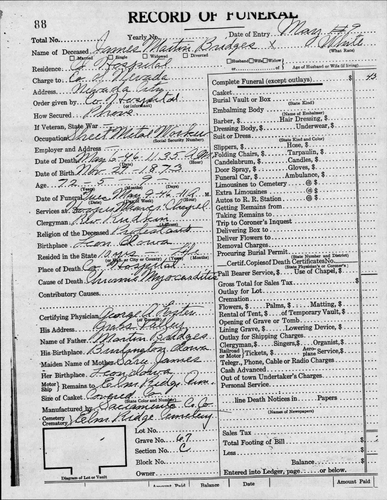 88
RECORD OF FUNERAL
Total No.
Date of Entry May
Name of Deceased James Martin Bridges
White
(What Race)
Married Single Widowed Divorced
Husband Wife Widow
Age of Husband or Wife (if living)
Residence Co Hospital
Charge to Co of Nevada
Nevada City
Order given by Co Hospital
How Secured Phone
If Veteran, State War
Occupation Sheet Metal Worker
(Social Security Number)
Employer and Address
Date of Death May 5-46-11:35
Date of Birth Nov. 27-1873
Age 72 5
Date of Funeral
Services at Chapel
Clergyman Rev
Religion of the Deceased Protestant
Birthplace Leon Iowa
Resided in the State
Place of Death Co Hospital
Cause of Death Chronic Myocarditis
Contributory Causes
Certifying Physician George A Foster
His Address Grass Valley
Name of Father Martin Bridges
His Birthplace Burlington Iowa
Maiden Name of Mother James
Her Birthplace Leon Iowa
Motor Ship Remains to Elm Ridge Cem.
Size of Casket Covered
(State Color and Number)
Manufactured by Sacramento C. Co.
Cemetery Crematory Elm Ridge Cemetery
Lot No.
Grave No. 67
Section No. C
Block No.
Owner
Diagram of Lot or Vault
Complete Funeral (except outlays) $
Casket
Burial Vault or Box
(State Kind)
Embalming Body
(Name of Embalmer)
Barber, $ Hair Dressing, $
Dressing Body, $ Underwear, $
Suit or Dress
(State Kind and Color)
Slippers, $ Hose, $
Folding Chairs, $ Tarpaulin, $
Candelabrum, $ Candles, $
Door Spray, $ Gloves, $
Funeral Car, $ Ambulance, $
Limousines to Cemetery @ $
Extra Limousines @ $
Autos to R. R. Station @ $
Getting Remains from
Taking Remains to
Trip to Coroner's Inquest
Delivering Box to
Deliver Flowers to
Removal Charges
Procuring Burial Permit
(State District and Number)
Certif. Copies of Death Certificate No.
(State Physician's or Coroner's)
Pall Bearer Service, $ Use of Chapel, $
Gross Total for Sales Tax $
Outlay for Lot
Cremation
Flowers, $ Palms, $ Matting, $
Rental of Tent, $ of Temporary Vault, $
Opening of Grave or Tomb
Lining Grave, $ Lowering Device, $
Outlay for Shipping Charges
Clergyman, $ Singers $ Organist, $
Tickets, $ Service, $
Telegr., Phone, Cable or Radio Charges
Cash Advanced
Out of town Undertaker's Charges
Personal Service
line Death Notices in Papers
(Names of Newspapers)
Sales Tax
Total Footing of Bill $
Less
Balance
Entered into Ledger, page or below.
Amount Paid Balance Date Amount Paid Balance Date Amount Paid